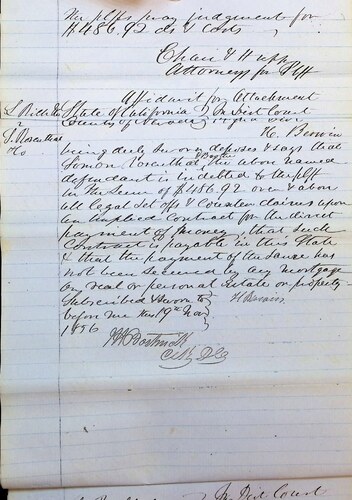 The plffs pray judgment for
$486.92 ds & costs
Chair & Hupp
Attorneys for Plff
Affidavit for Attachment
State of California In Dist Court
County of
S. Rosenthal H. Berwin
being duly sworn deposes & says that
Simon Rosenthal the above named
defendant is indebted to the plff
in the sum of $486.92 over & above
all legal set offs & Counter claims upon
an implied Contract for the direct
payment of money, that such
Contract is payable in this State
& that the payment of the same has
not been secured by any mortgage
on real or personal Estate or property
Subscribed & sworn to H Berwin
before me this 19th
1856
Clk
Dist Court